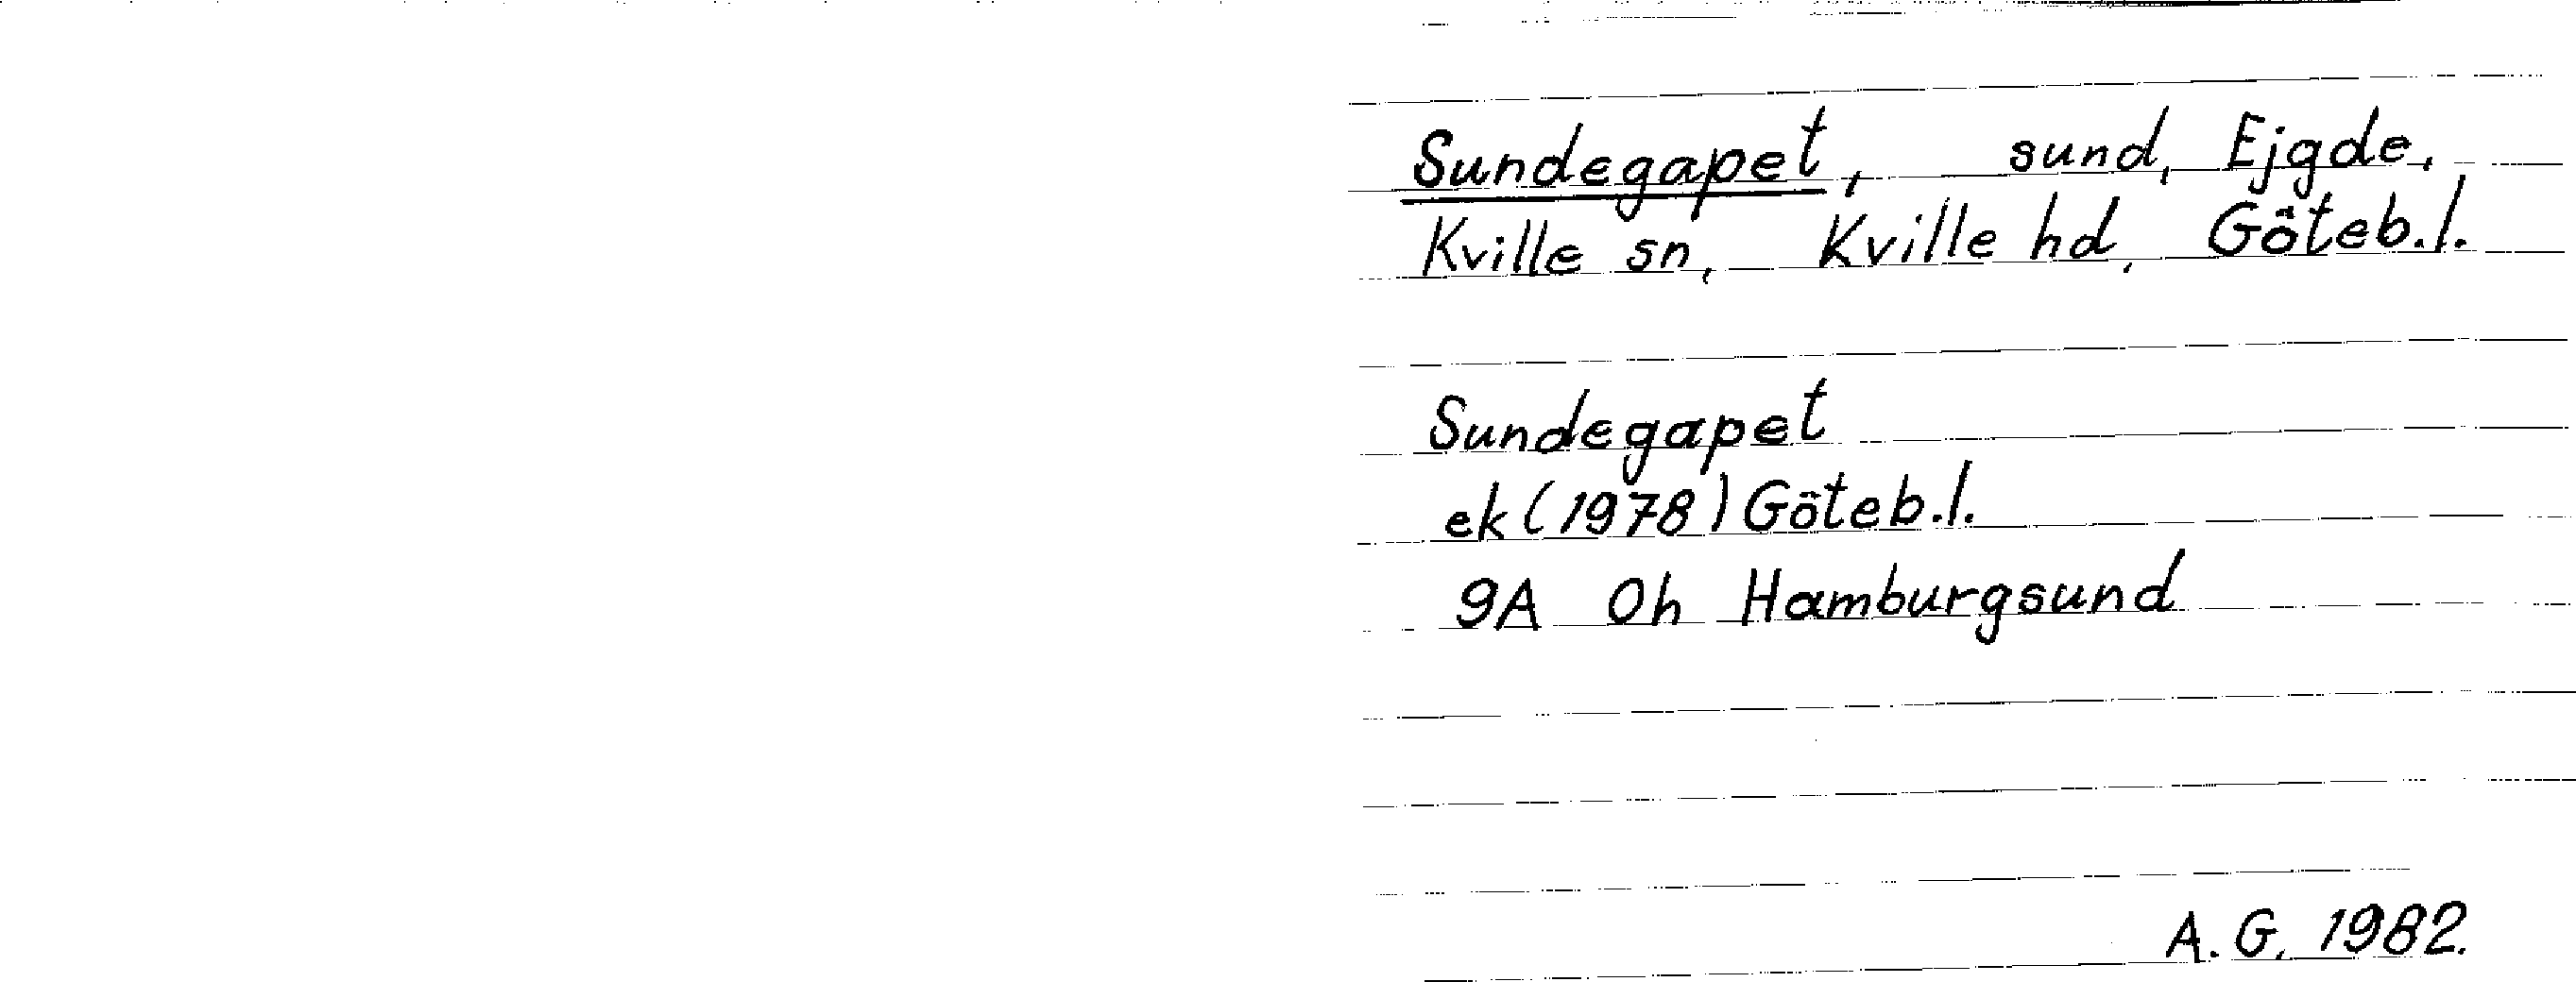 Sundegapet, sund, Ejgde,
Kville sn, Kville hd, Göteb.l.
Sundegapet
ek (1978) Göteb.l.
9A 0h Hamburgsund
A.G, 1982.